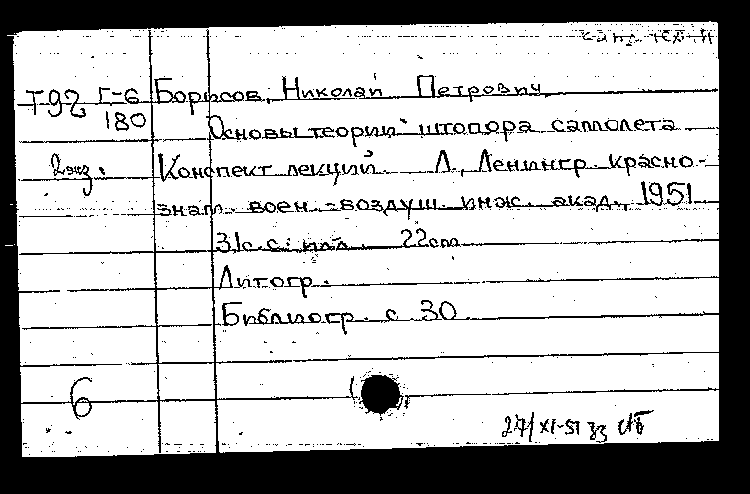 Т92 Г-6 Борисов, Николай Петрович
180 Основы теории штопора самолета
2 экз. Конспект лекций. Л., Ленингр. красно-
знам. воен.-воздуш. инж. акад., 1951
31с. с илл. 22см
Литогр.
Библиогр. с 30
6
27/XI-51